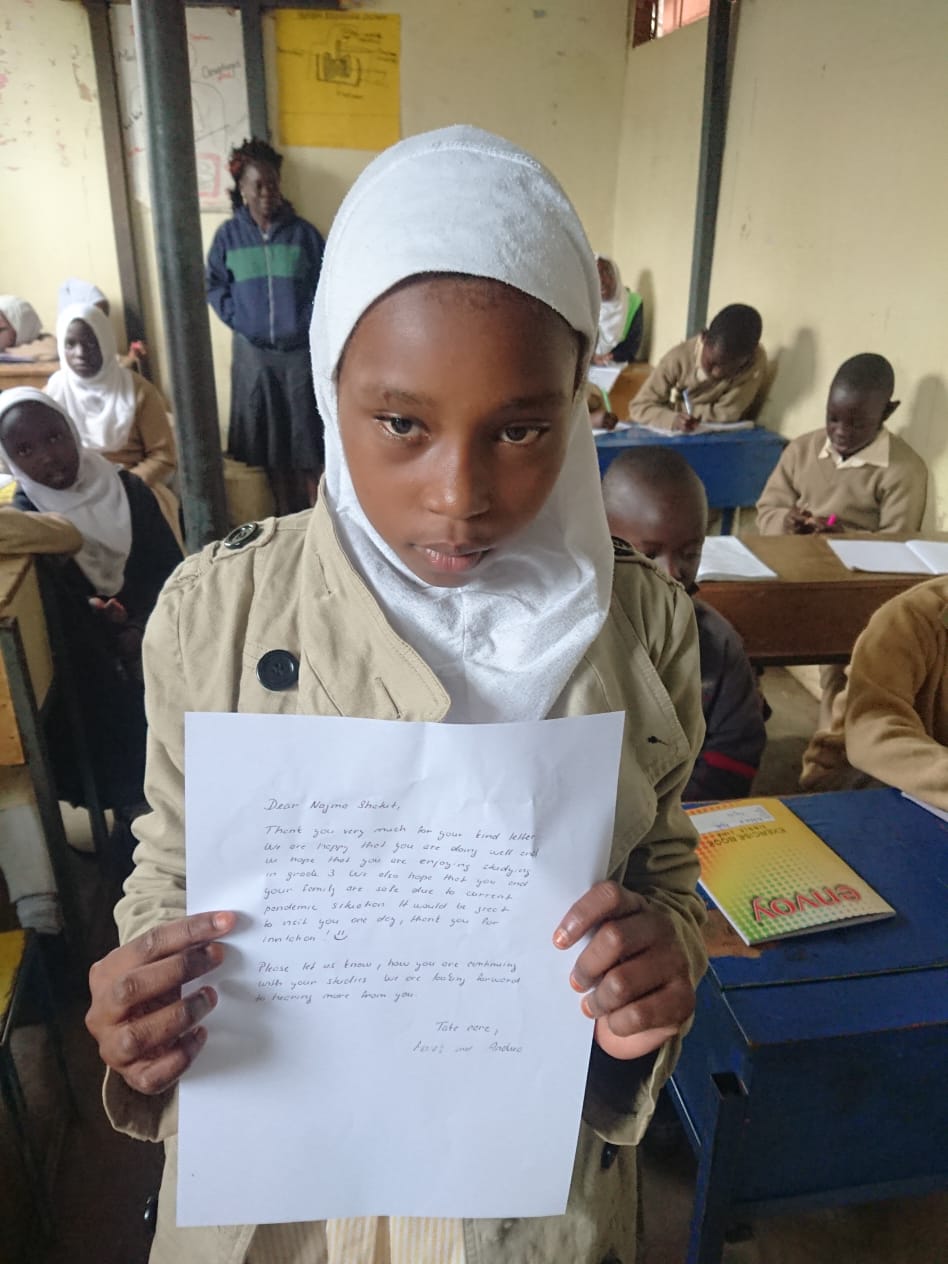 Dear Najma Shakit,
Thank you very much for your kind letter.
We are happy that you are doing well and
we hope that you are enjoying studying
in grade 3. We also hope that you and
your family are safe due to current
pandemic situation. It would be great
to visit you one day, thank you for
invitation!
Please let us know, how you are continuing
with your studies. We are looking forward
to hearing more from you
Take care,
and Andrea
EXERCISE BOOK
envoy